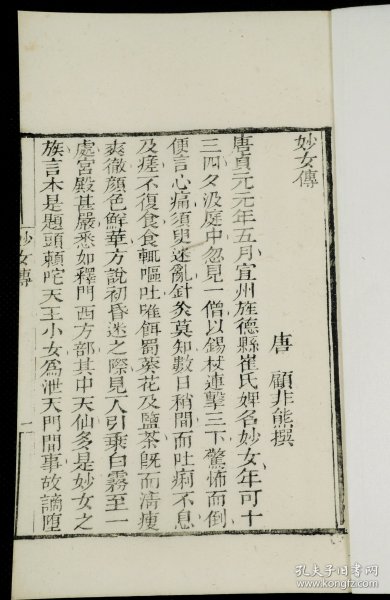 妙女傳
唐 顧非熊撰
唐貞元元年五月宣州旌德縣崔氏婢名妙女年可十
三四夕汲庭中忽見一僧以錫杖連擊三下驚怖而倒
便言心痛須臾迷亂針灸莫知數日稍間而吐痢不息
及瘥不復食食輒嘔吐唯餌蜀葵花及鹽茶旣而清瘦
爽徹顏色鮮華方說初昏迷之際見人引乘白霧至一
處宮殿甚嚴悉如釋門西方部其中天仙多是妙女之
族言本是題頭賴吒天王小女爲泄天門間事故謫墮
妙女傳
一
孔夫子旧书网